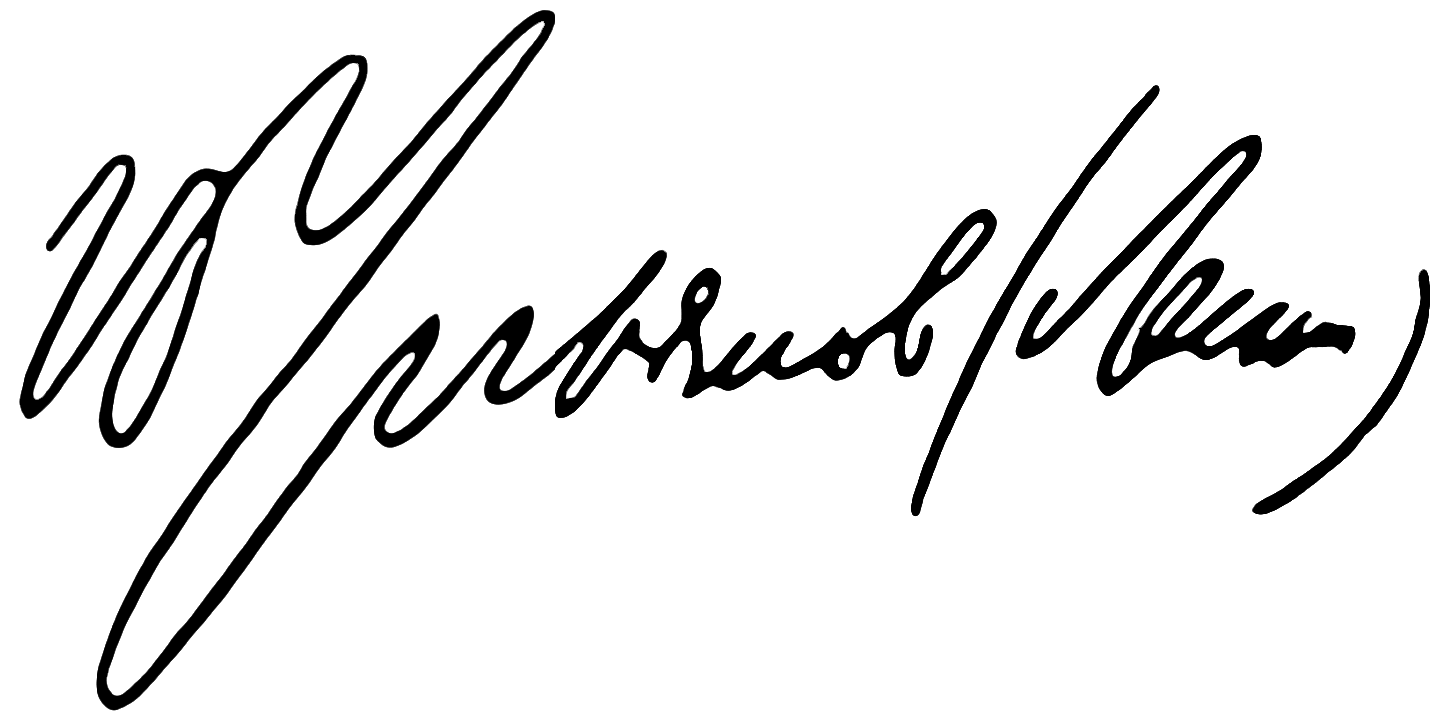 В Ульянов (Ленин)